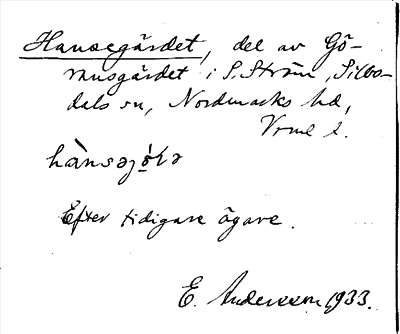 Hansegärdet, del av Gö-
ransgärdet i S. Ström, Silbo-
dals sn, Nordmarks hd,
Vrml l.
hànsəjö̀ḷə
Efter tidigare ägare.
E. Andersson 1933.